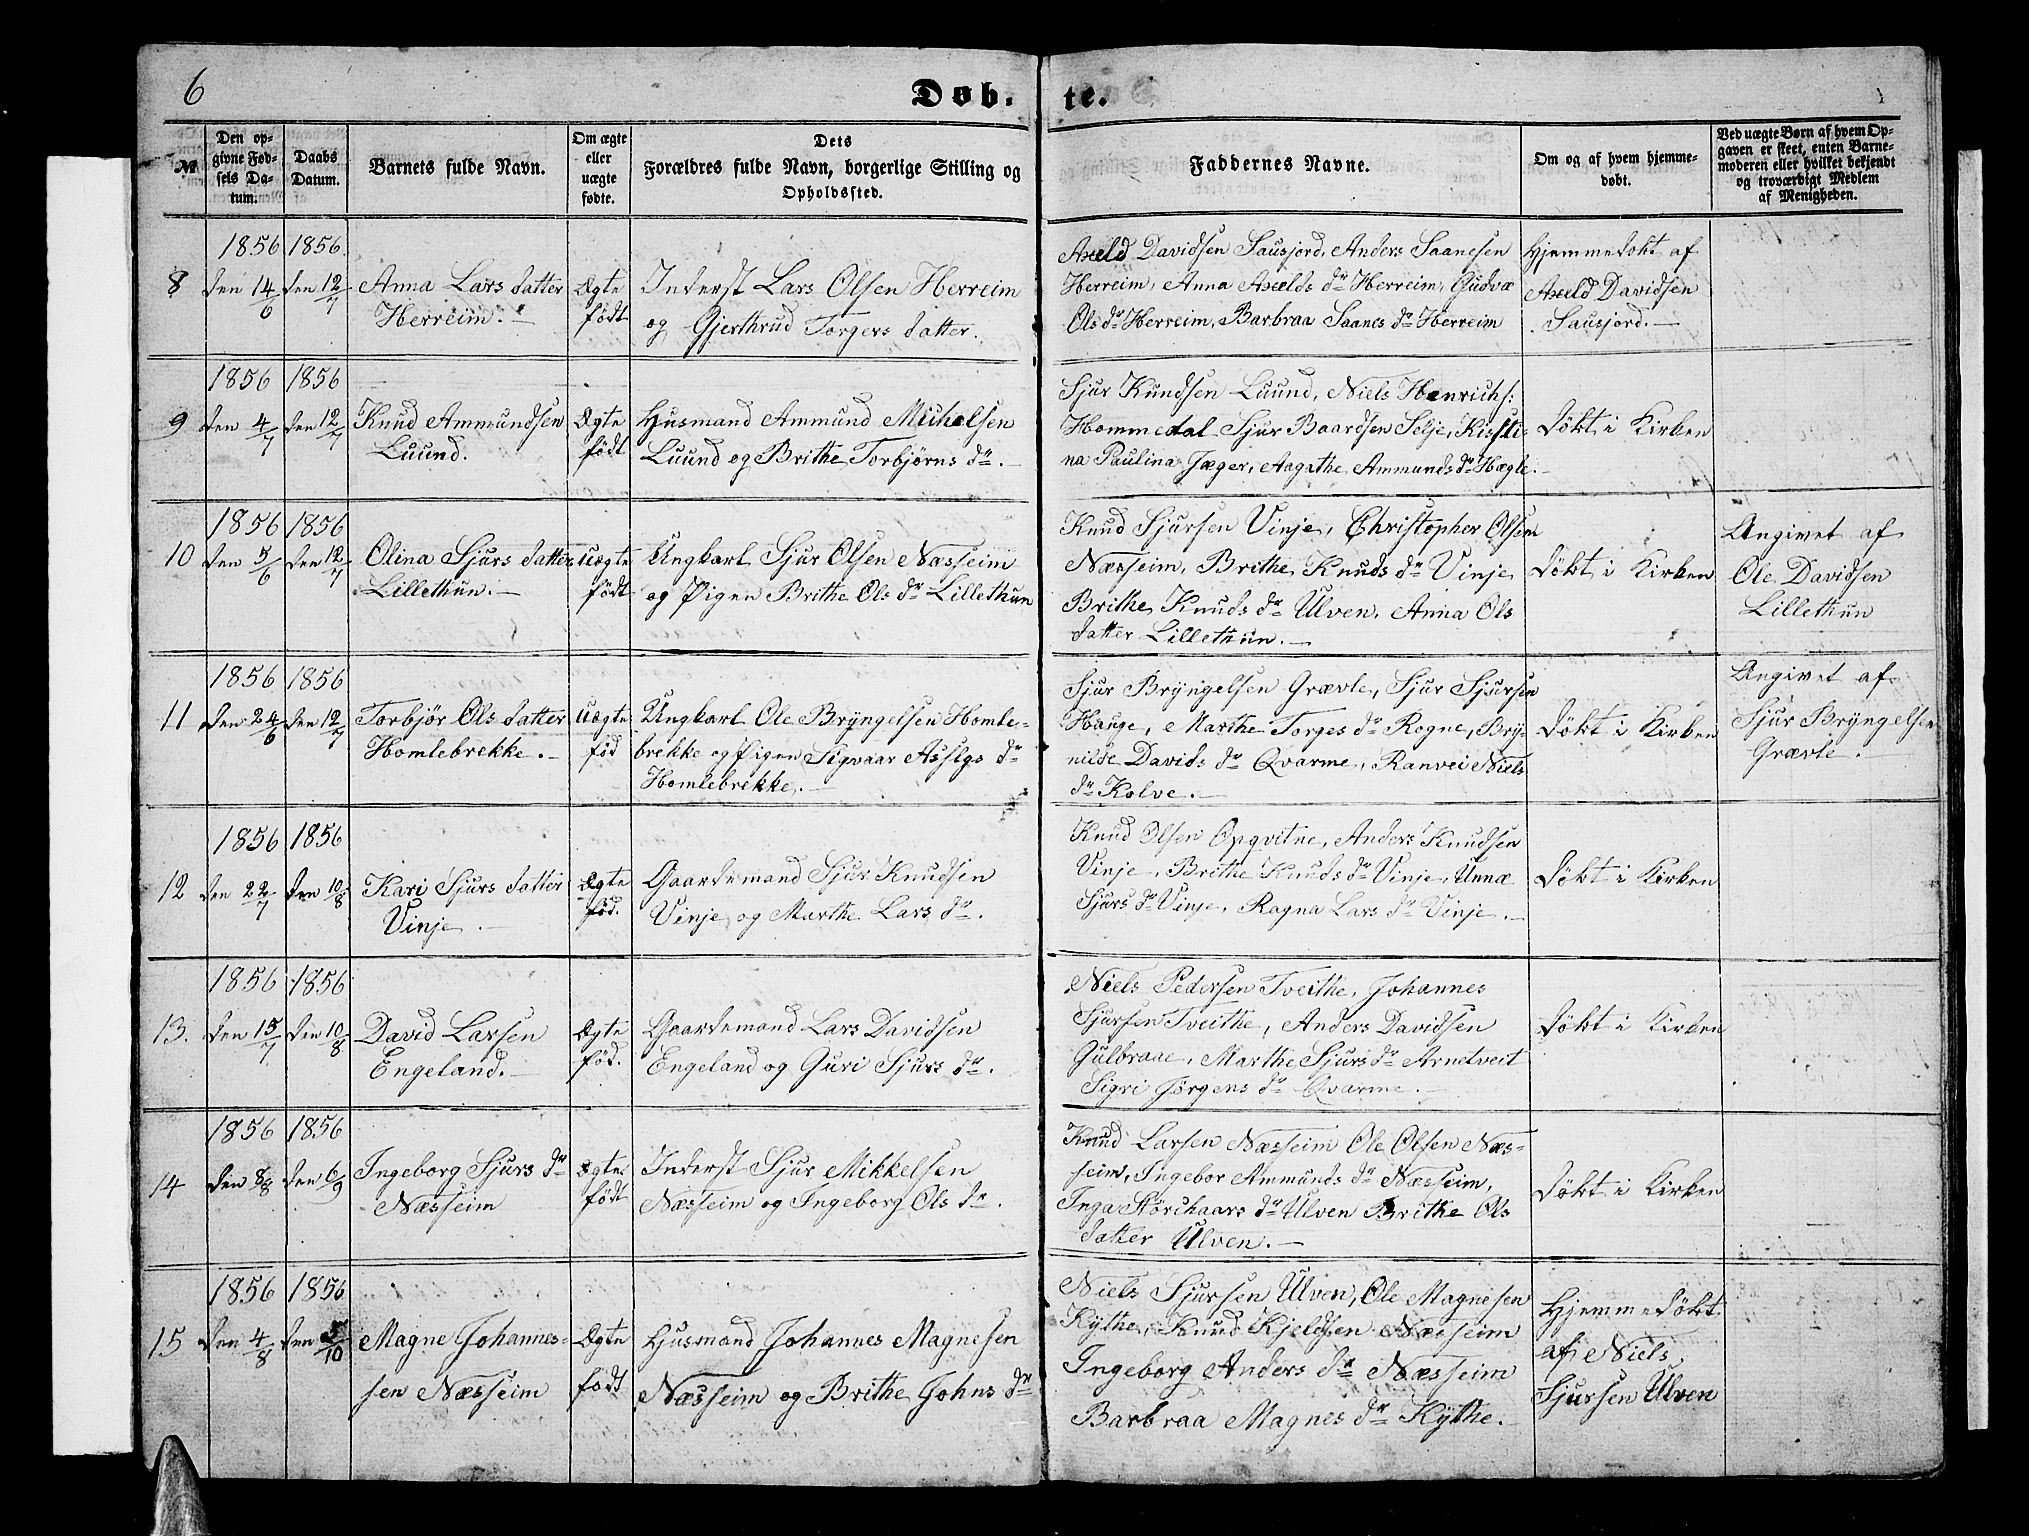 6
Døb. te.
№
Den op-
givne Fød-
sels Da-
tum.
Daabs
Datum.
Barnets fulde Navn.
Om ægte
eller
uægte
fødte.
Dets
Forældres fulde Navn, borgerlige Stilling og
Opholdssted.
Faddernes Navne.
Om og af hvem hjemme-
døbt.
Ved uægte Børn af hvem Op-
gaven er skeet, enten Barne-
moderen eller hvilket bekjendt
og troværdigt Medlem
af Menigheden.
8
1856
den 14/6
1856
den 12/7
Anna Lars datter
Herreim.
Ægte
født
Inderst Lars Olsen Herreim
og Gjerthrud Torgers datter.
Axeld Davidsen Sausjord, Anders Saanesen
Herreim, Anna Axelds dr Herreim, Gudvæ
Ols dr Herreim, Barbraa Saanes dr Herreim
Hjemmedøkt af
Axeld Davidsen
Sausjord.
9
1856
den 4/7
1856
den 12/7
Knud Ammundsen
Luund.
Ægte
født
Husmand Ammund Michelsen
Luund og Brithe Torbjørns dr.
Sjur Knudsen Luund, Niels Henrichs:
Hommedal Sjur Baardsen Selje, Kisti-
na Paulina Jæger, Aagathe Ammunds dr Hægle.
døkt i Kirken
10
1856
den 5/6
1856
den 12/7
Olina Sjurs datter
Lillethun.
Uægte
født
Ungkarl Sjur Olsen Næsseim
og Pigen Brithe Ols dr Lillethun
Knud Sjursen Vinje, Christopher Olsen
Næsseim, Brithe Knuds dr Vinje
Brithe Knuds dr Ulven, Anna Ols
datter Lillethun.
døkt i Kirken
Angivet af
Ole Davidsen
Lillethun
11
1856
den 24/6
1856
den 12/7
Torbjør Ols datter
Homlebrekke.
Uægte
fød
Ungkarl Ole Bryngelsen Homle-
brekke og Pigen Sigvaar Aslgs dr
Homlebrekke.
Sjur Bryngelsen Grævle, Sjur Sjursen
Hauge, Marthe Torges dr Rogne, Bry-
nilde Davids dr Qvarme, Ranvei Niels
dr Kolve.
døkt i Kirken
Angivet af
Sjur Bryngelsen
Grævle.
12
1856
den 22/7
1856
den 10/8
Kari Sjurs datter
Vinje.
Ægte
fød.
Gaardemand Sjur Knudsen
Vinje og Marthe Lars dr.
Knud Olsen Opqvitne, Anders Knudsen
Vinje, Brithe Knuds dr Vinje, Unnæ
Sjurs dr Vinje, Ragna Lars dr Vinje.
døkt i Kirken
13.
1856
den 15/7
1856
den 10/8
David Larsen
Engeland.
Ægte
fød.
Gaardemand Lars Davidsen
Engeland og Guri Sjurs dr.
Niels Pedersen Tveithe, Johannes
Sjursen Tveithe, Anders Davidsen
Gulbraae, Marthe Sjurs dr Arnetveit
Sigri Jørgens dr Qvarme.
døkt i Kirken
14
1856
den 8/8
1856
den 6/9
Ingeborg Sjurs dr
Næsseim
Ægte
født
Inderst Sjur Mikkelsen
Næsseim og Ingeborg Ols dr.
Knud Larsen Næsseim Ole Olsen Næs-
seim, Ingebor Ammunds dr Næsseim,
Inga Størchaars dr Ulven Brithe Ols
datter Ulven.
døkt i Kirken
15
1856
den 4/8
1856
den 5/10
Magne Johannes-
sen Næsseim
Ægte
født
Husmand Johannes Magnesen
Næsseim og Brithe Johns dr
Niels Sjursen Ulven, Ole Magnesen
Kythe, Knud Kjeldsen Næsseim
Ingeborg Anders dr Næsseim
Barbraa Magnes dr Kythe.
Hjemmedøkt
af Niels
Sjursen Ulven